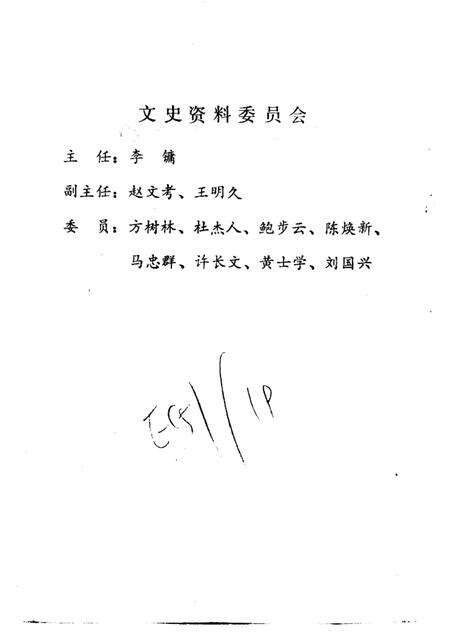 文史资料委员会
主 任：李 镛
副主任：赵文考、王明久
委 员：方树林、杜杰人、鲍步云、陈焕新、
马忠群、许长文、黄士学、刘国兴